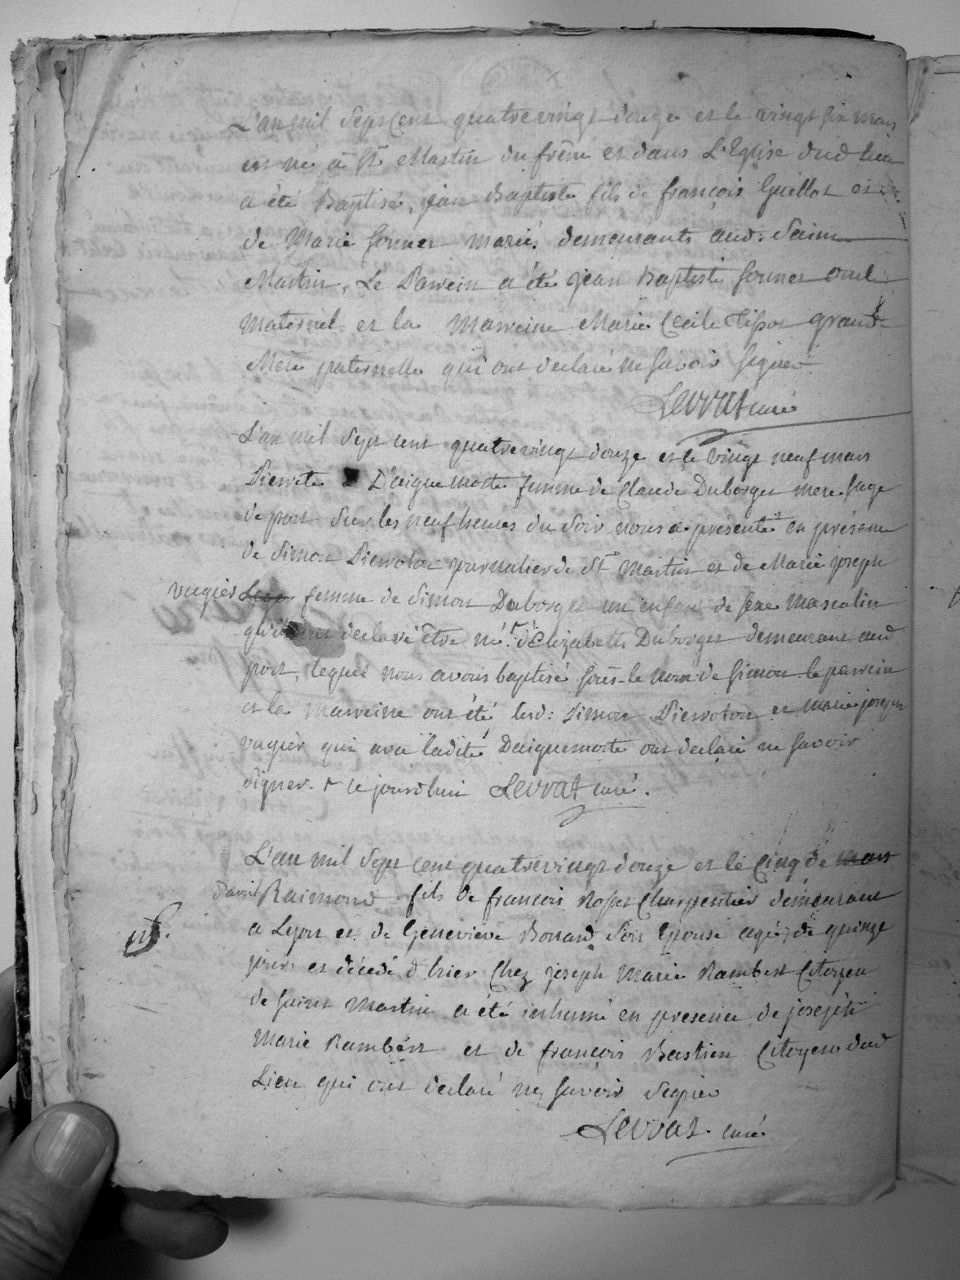 L'an mil Sept Cent quatrevingt douze et le vingt six mars
est né à St Martin du frêne et dans L'Eglise dud lieu
a été Baptisé, jean Baptiste fils de françois Guillot et
de Marie fornier mariés demeurants aud. Saint
Martin, Le Parrein a été jean Baptiste fornier oncle
maternel et la marreine Marie Cecile grand
Mere paternelle qui ont declaré ne savoir signer
Levrat curé
L'an mil Sept cent quatrevingt douze et le vingt neuf mars
Pierrete D'aiguemorte femme de Claude Duborget mere sage
de port sur les neuf heures du soir nous a presenté en présence
de Simon Pierroton journalier de St Martin et de Marie joseph
vugiés femme de Simon Duborget un enfant de sexe masculin
declaré être né d'Elizabeth Duborget demeurant aud
port, lequel nous avons baptisé sous le nom de Simon le parrein
et la marreine ont été lesd: Simon Pierroton et marie joseph
vugiér qui avec ladite Daiguemorte ont declaré ne savoir
signer. + ce jourdhui Levrat curé.
L'an mil Sept cent quatrevingt douze et le cinq de mars
d'avril Raimond fils de francois Rosset Charpentier demeurant
a Lyon et de Genevieve Bonard son Epouse agé de quinze
jours et décédé d'hier Chez joseph Marie Rambert Citoyen
de saint Martin a été inhumé en presence de joseph
Marie Rambert et de francois Bastien Citoyen dud
Lieu qui ont declaré ne savoir signer
Levrat curé